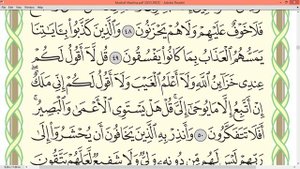 فَلَا خَوْفٌ عَلَيْهِمْ وَلَا هُمْ يَحْزَنُونَ ٤٨ وَالَّذِينَ كَذَّبُوا بِآيَاتِنَا
يَمَسُّهُمُ الْعَذَابُ بِمَا كَانُوا يَفْسُقُونَ ٤٩ قُل لَّا أَقُولُ لَكُمْ
عِندِي خَزَائِنُ اللَّهِ وَلَا أَعْلَمُ الْغَيْبَ وَلَا أَقُولُ لَكُمْ إِنِّي مَلَكٌ
إِنْ أَتَّبِعُ إِلَّا مَا يُوحَىٰ إِلَيَّ قُلْ هَلْ يَسْتَوِي الْأَعْمَىٰ وَالْبَصِيرُ
أَفَلَا تَتَفَكَّرُونَ ٥٠ وَأَنذِرْ بِهِ الَّذِينَ يَخَافُونَ أَن يُحْشَرُوا إِلَىٰ
رَبِّهِمْ لَيْسَ لَهُم مِّن دُونِهِ وَلِيٌّ وَلَا شَفِيعٌ لَّعَلَّهُمْ يَتَّقُونَ